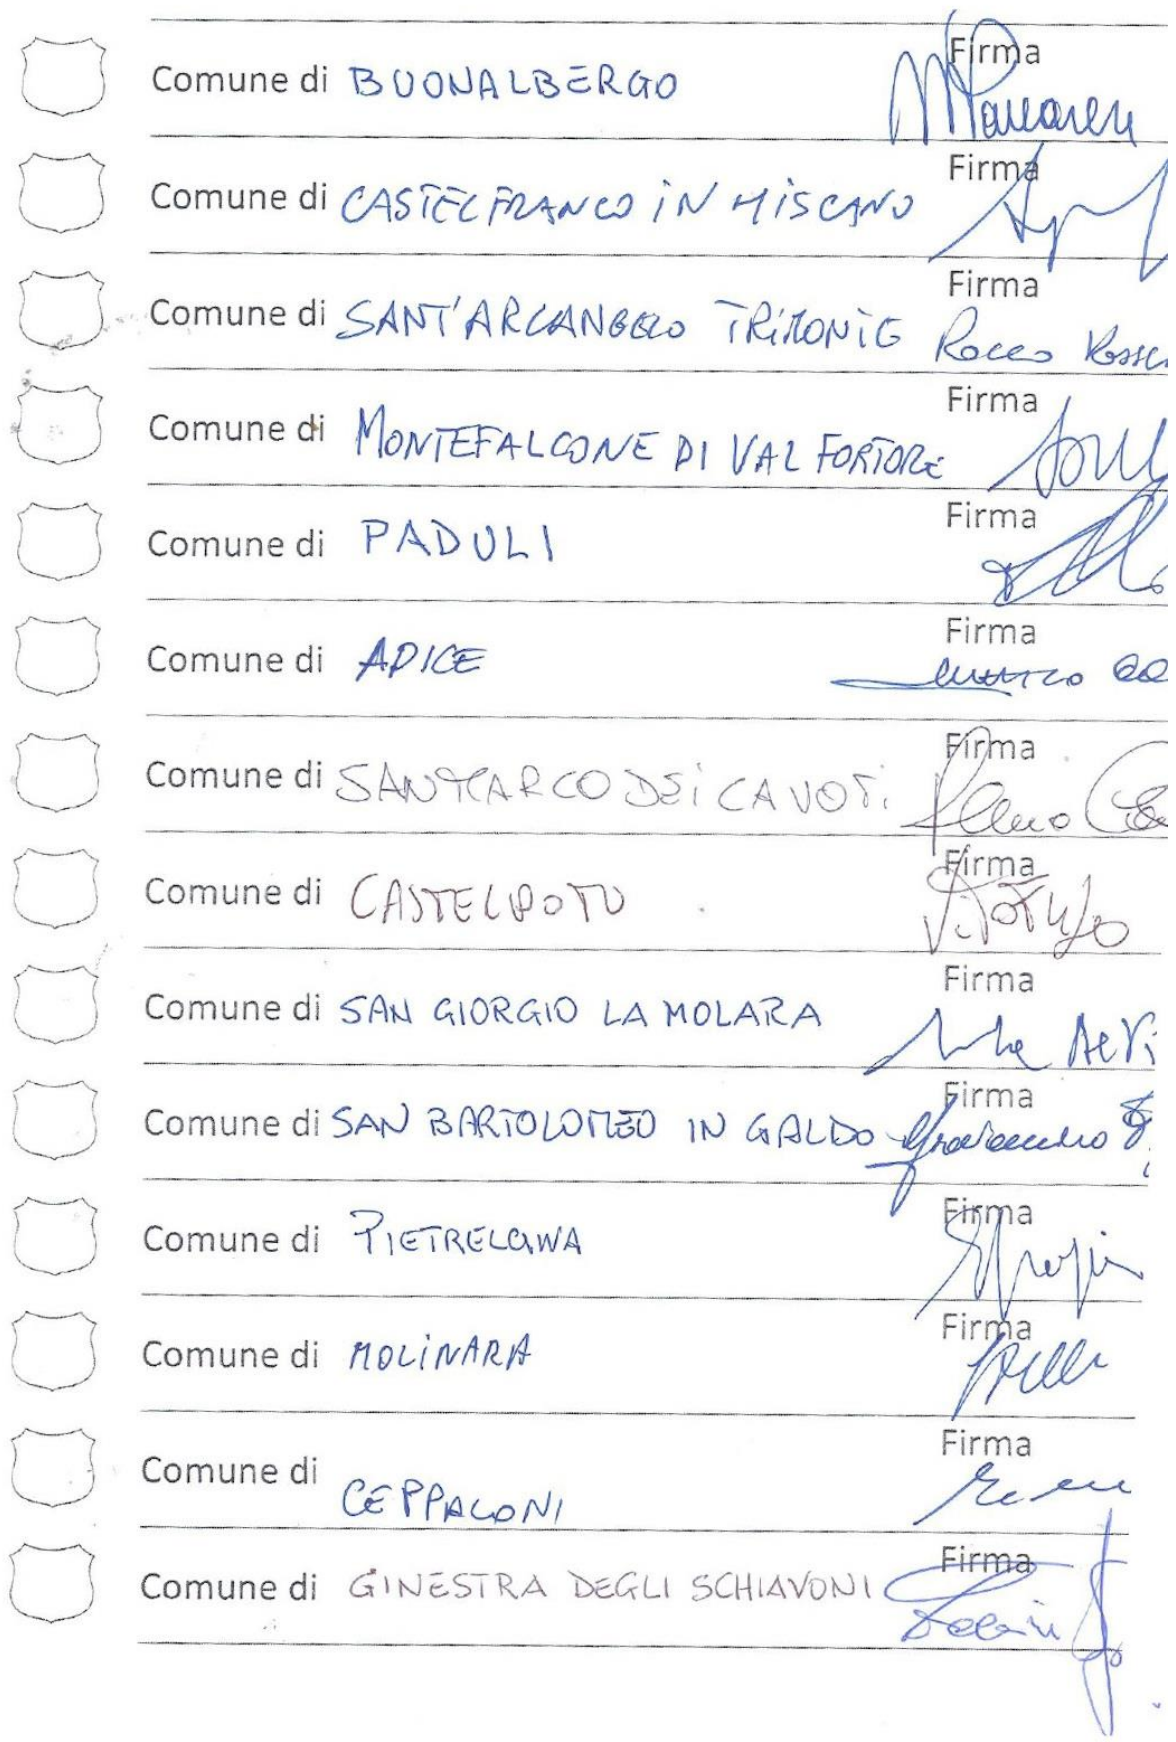 Firma
Comune di BUONALBERGO
Firma
Comune di CASTELFRANCO iN MiSCANO
Firma
Comune di SANT'ARCANGELO TRiMONTE Rocco
Firma
Comune di MONTEFALCONE DI VAL FORTORE
Firma
Comune di PADULI
Firma
Comune di APICE
Firma
Comune di SAN MARCO DEi CAVOTi
Firma
Comune di CASTELPOTO
Firma
Comune di SAN GIORGIO LA MOLARA
Firma
Comune di SAN BARTOLOMEO IN GALDO
Firma
Comune di PIETRELCINA
Firma
Comune di MOLiNARA
Firma
Comune di CEPPALONI
Firma
Comune di GINESTRA DEGLI SCHIAVONI